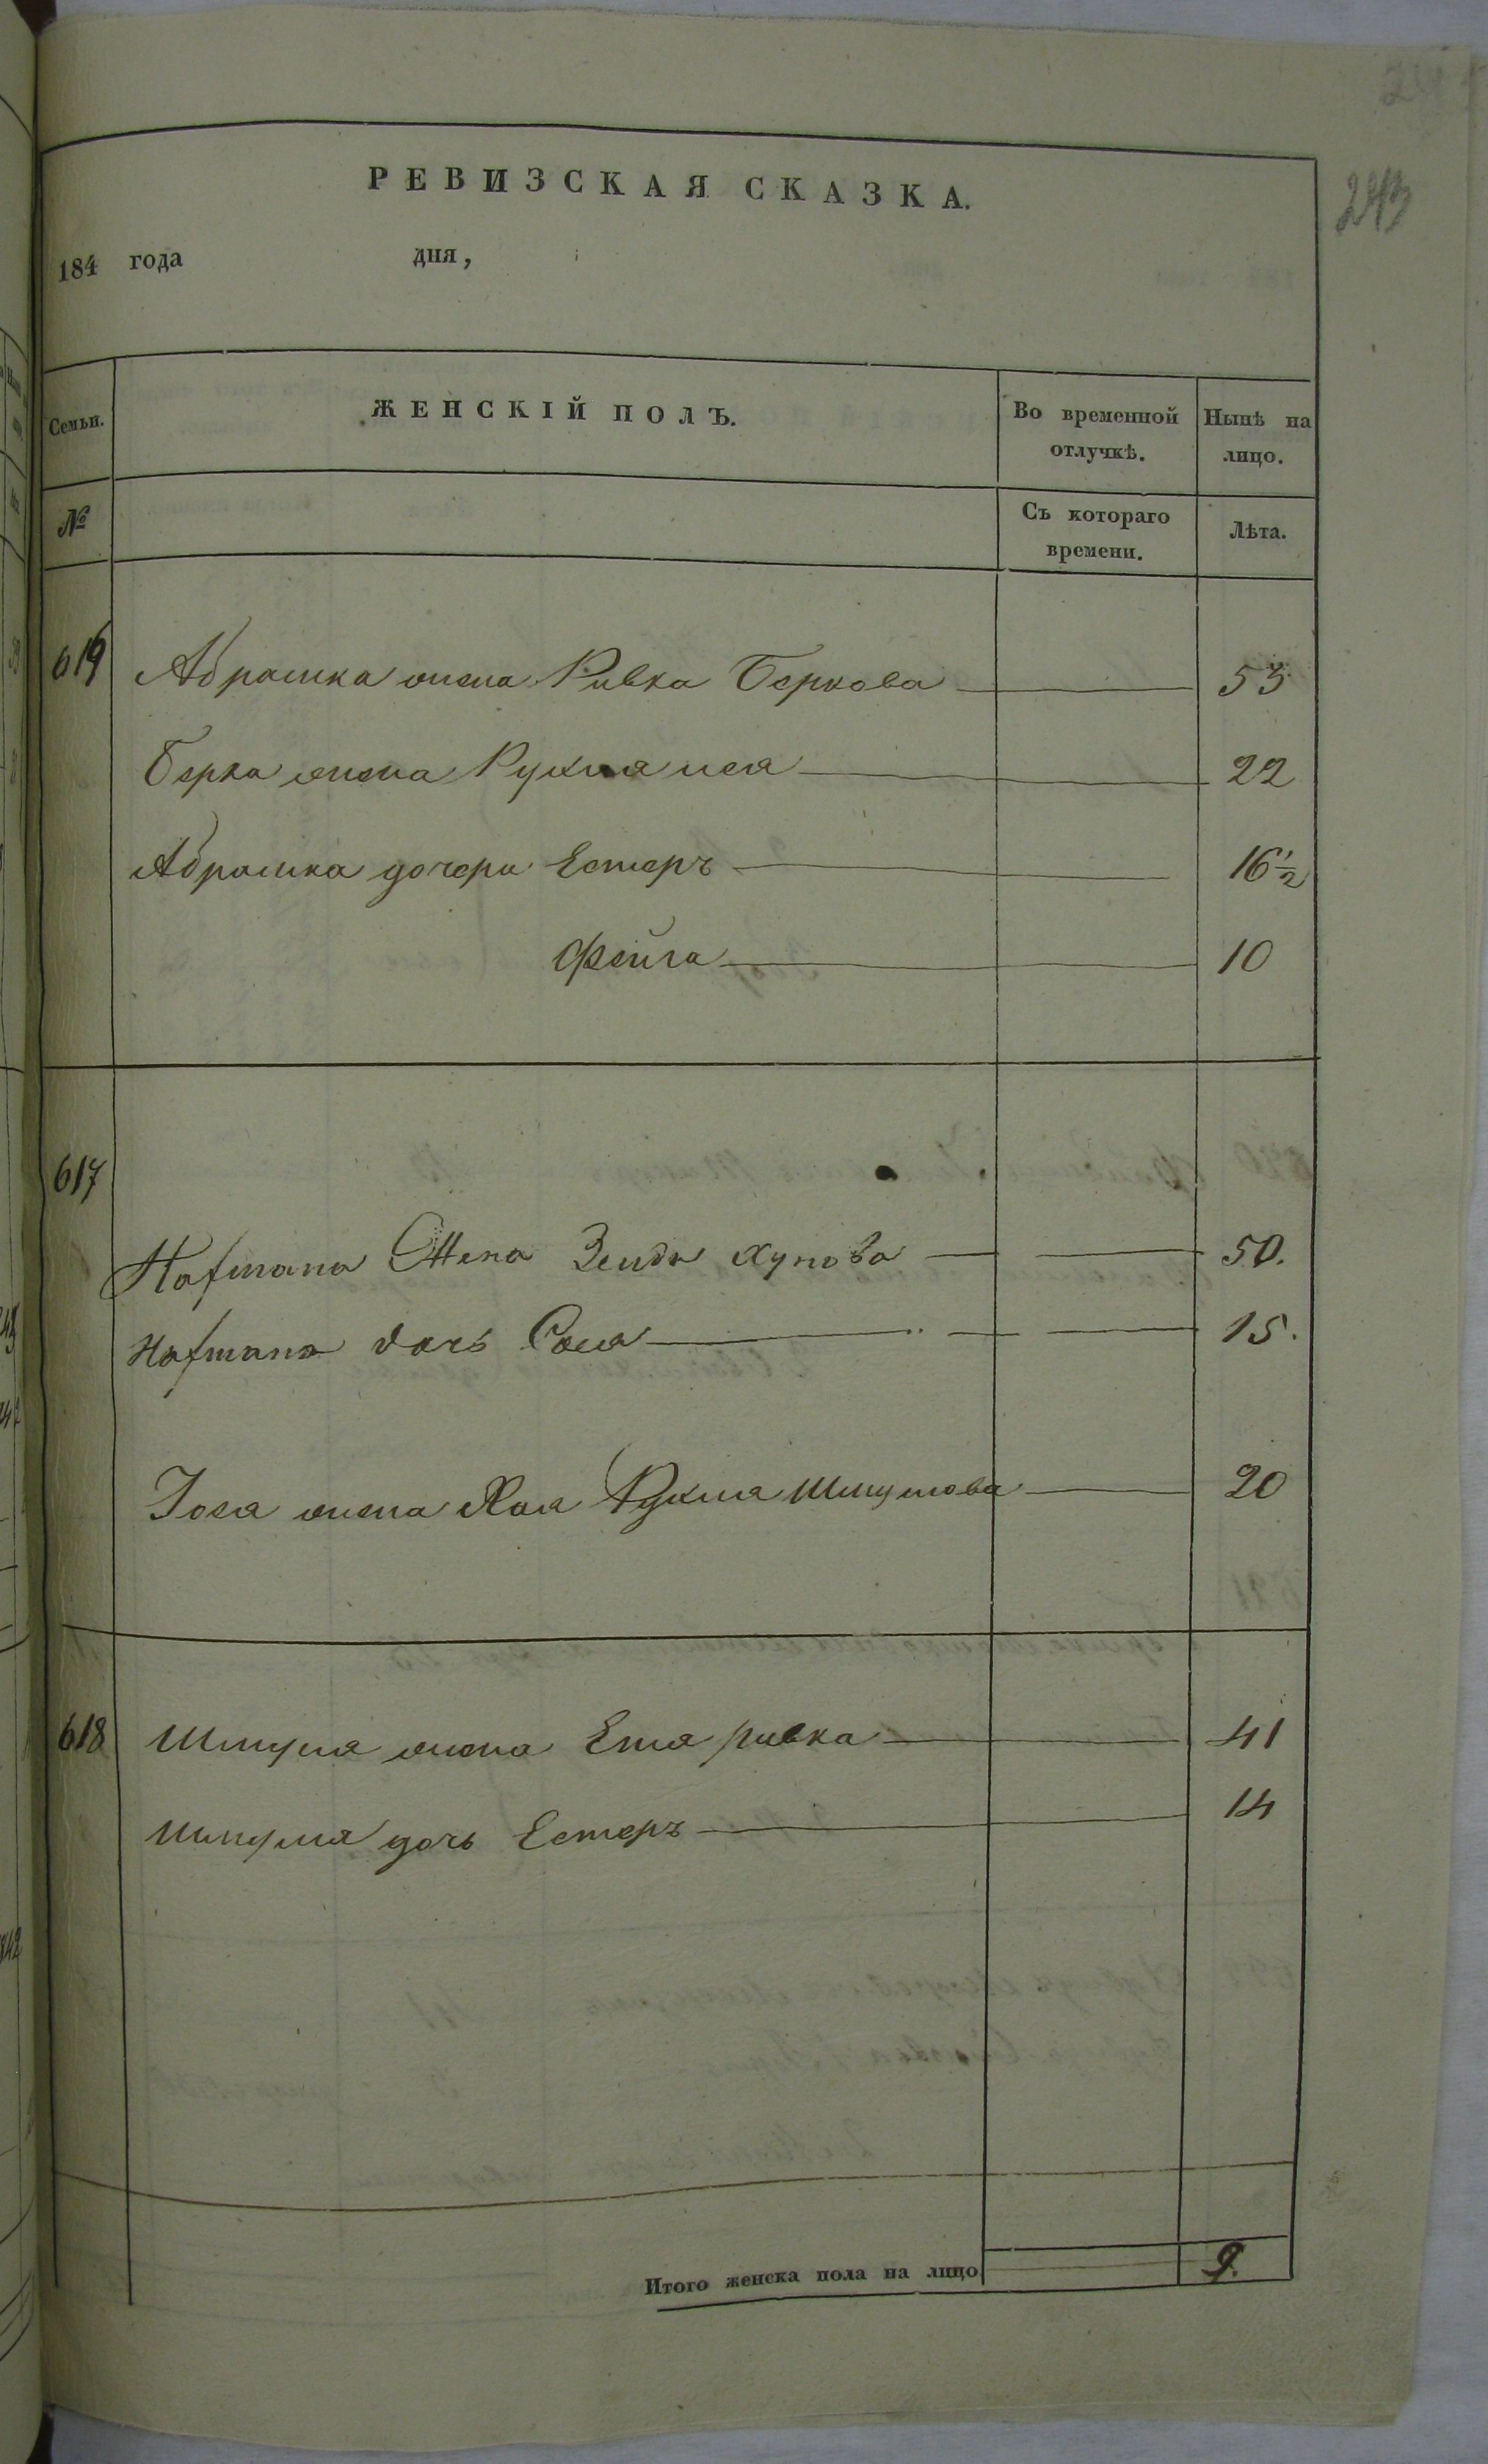 243
РЕВИЗСКАЯ СКАЗКА.
184 года дня,
Семьи. ЖЕНСКІЙ ПОЛЪ. Во временной отлучкѣ. Нынѣ на лицо.
№ Съ котораго времени. Лѣта.
619 Абрамка жена Ривка Беркова 53
Берка жена Рухля 22
Абрамка дочери Естеръ 16½
Фейга 10
617
жена 50.
дочь Сося 15.
Іося жена Хая Рухля Шмулова 20
618 Шмуля жена Етя ривка 41
Шмуля дочь Естеръ 14
Итого женска пола на лицо 9.